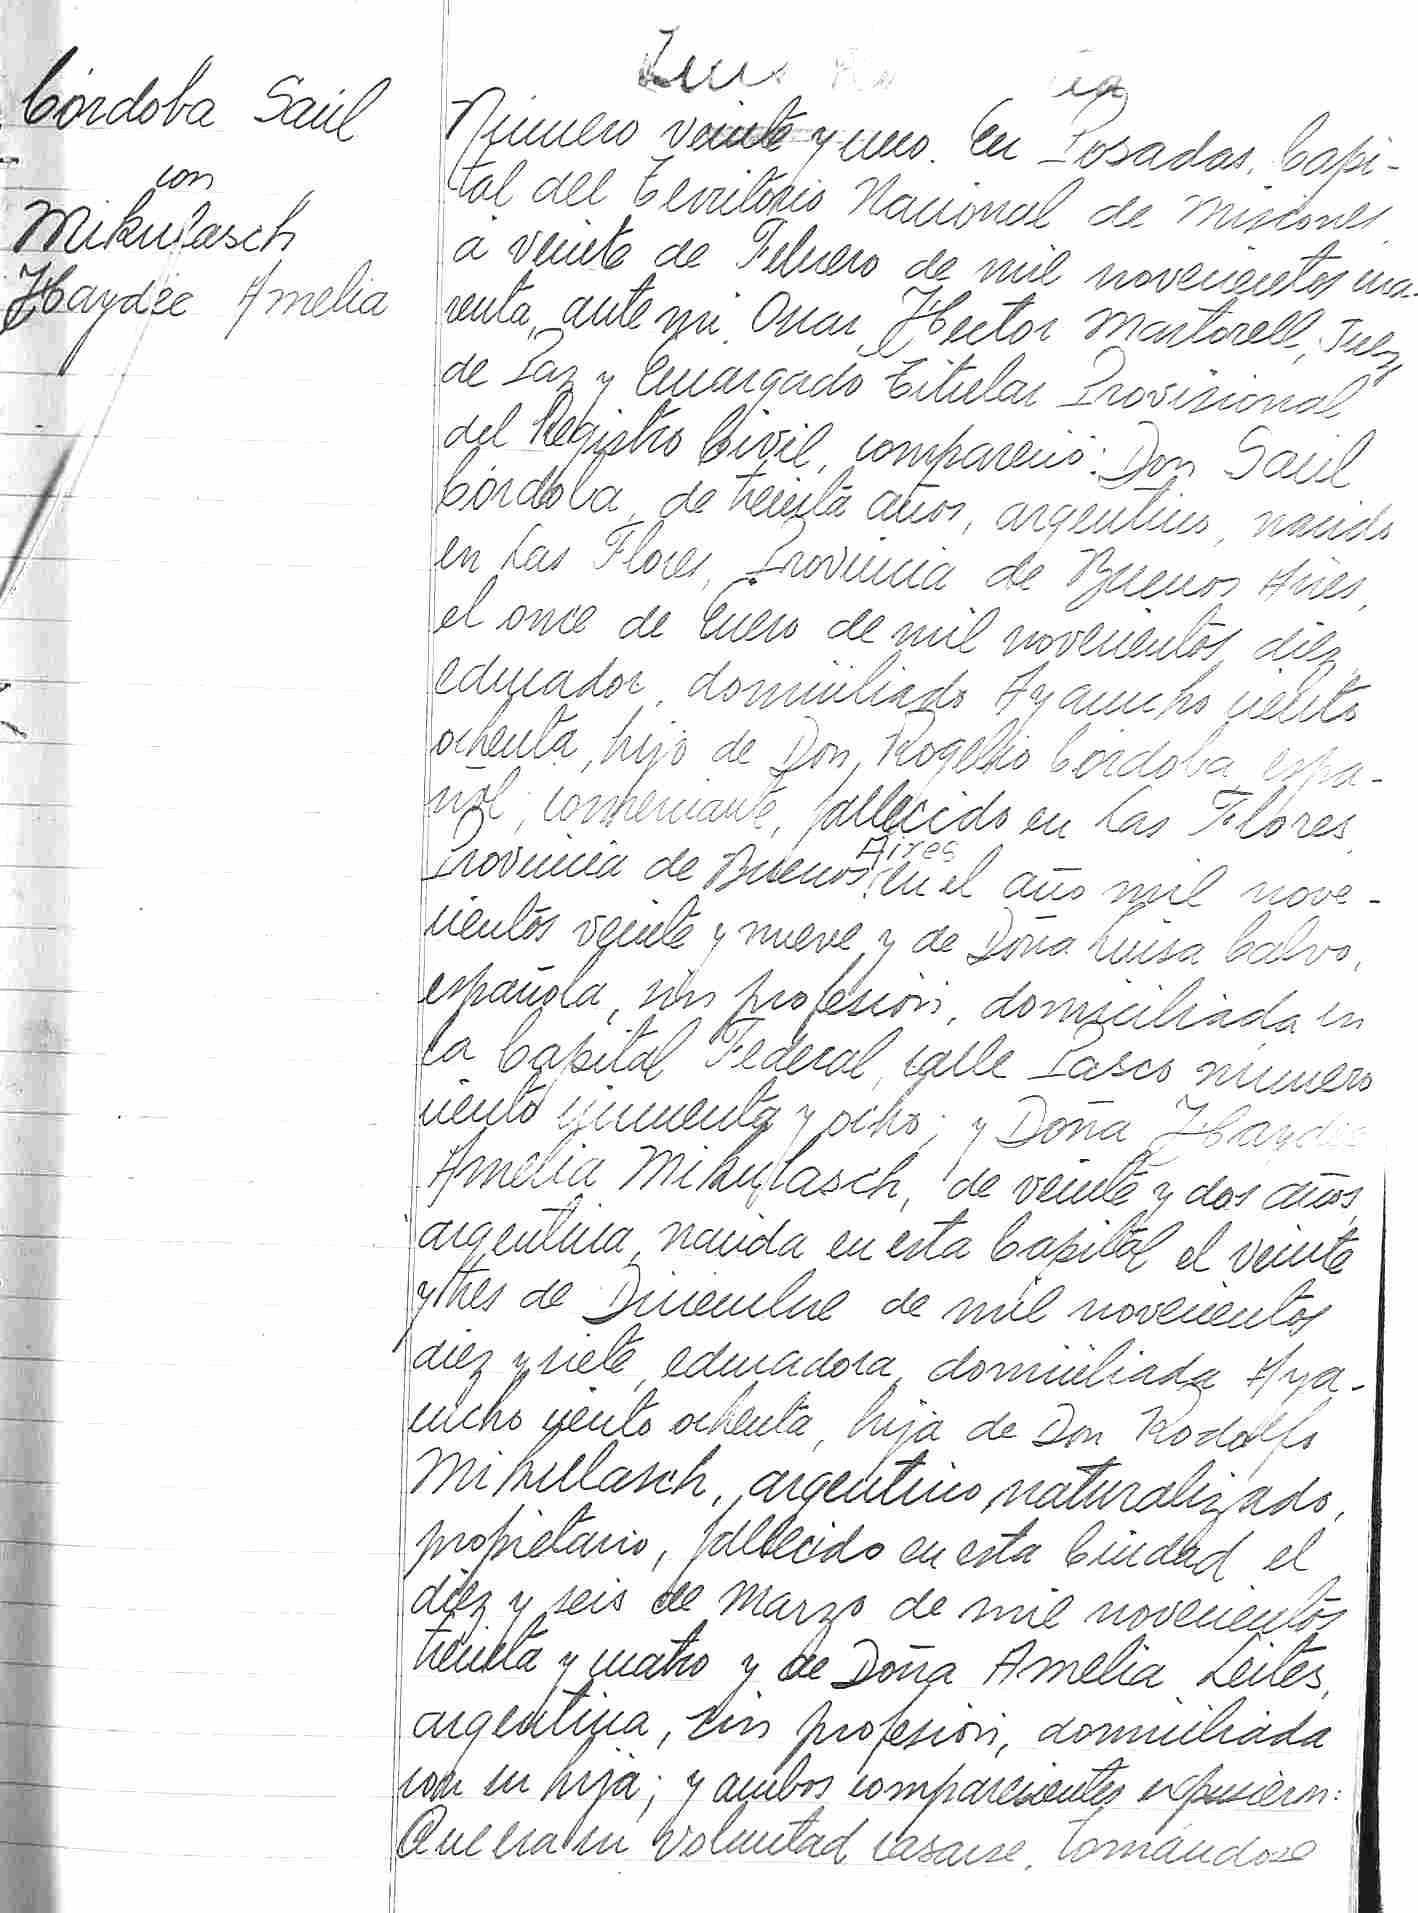 Córdoba Saúl
con
Mikulasch
Haydée Amelia
Luis
Número veinte y uno. En Posadas, Capi-
tal del Territorio Nacional de Misiones,
a veinte de Febrero de mil novecientos cua-
renta, ante mi, Oscar Hector Martorell, Juez
de Paz y Encargado Titular Provisional
del Registro Civil, compareció: Don Saúl
Córdoba, de treinta años, argentino, nacido
en Las Flores, Provincia de Buenos Aires,
el once de Enero de mil novecientos diez,
educador, domiciliado Ayacucho ciento
ochenta, hijo de Don Rogelio Córdoba, espa-
ñol, comerciante, fallecido en Las Flores,
Provincia de Buenos Aires en el año mil nove-
cientos veinte y nueve y de Doña Luisa Calvo,
española, sin profesión, domiciliada en
la Capital Federal, calle Pasco número
ciento cincuenta y ocho; y Doña Haydée
Amelia Mikulasch, de veinte y dos años,
argentina, nacida en esta Capital el veinte
y tres de Diciembre de mil novecientos
diez y siete, educadora, domiciliada Aya-
cucho ciento ochenta, hija de Don Rodolfo
Mikullasch, argentino naturalizado,
propietario, fallecido en esta Ciudad el
diez y seis de Marzo de mil novecientos
treinta y cuatro y de Doña Amelia Leites,
argentina, sin profesión, domiciliada
con su hija; y ambos comparecientes expusieron:
Que era su voluntad casarse, tomándose